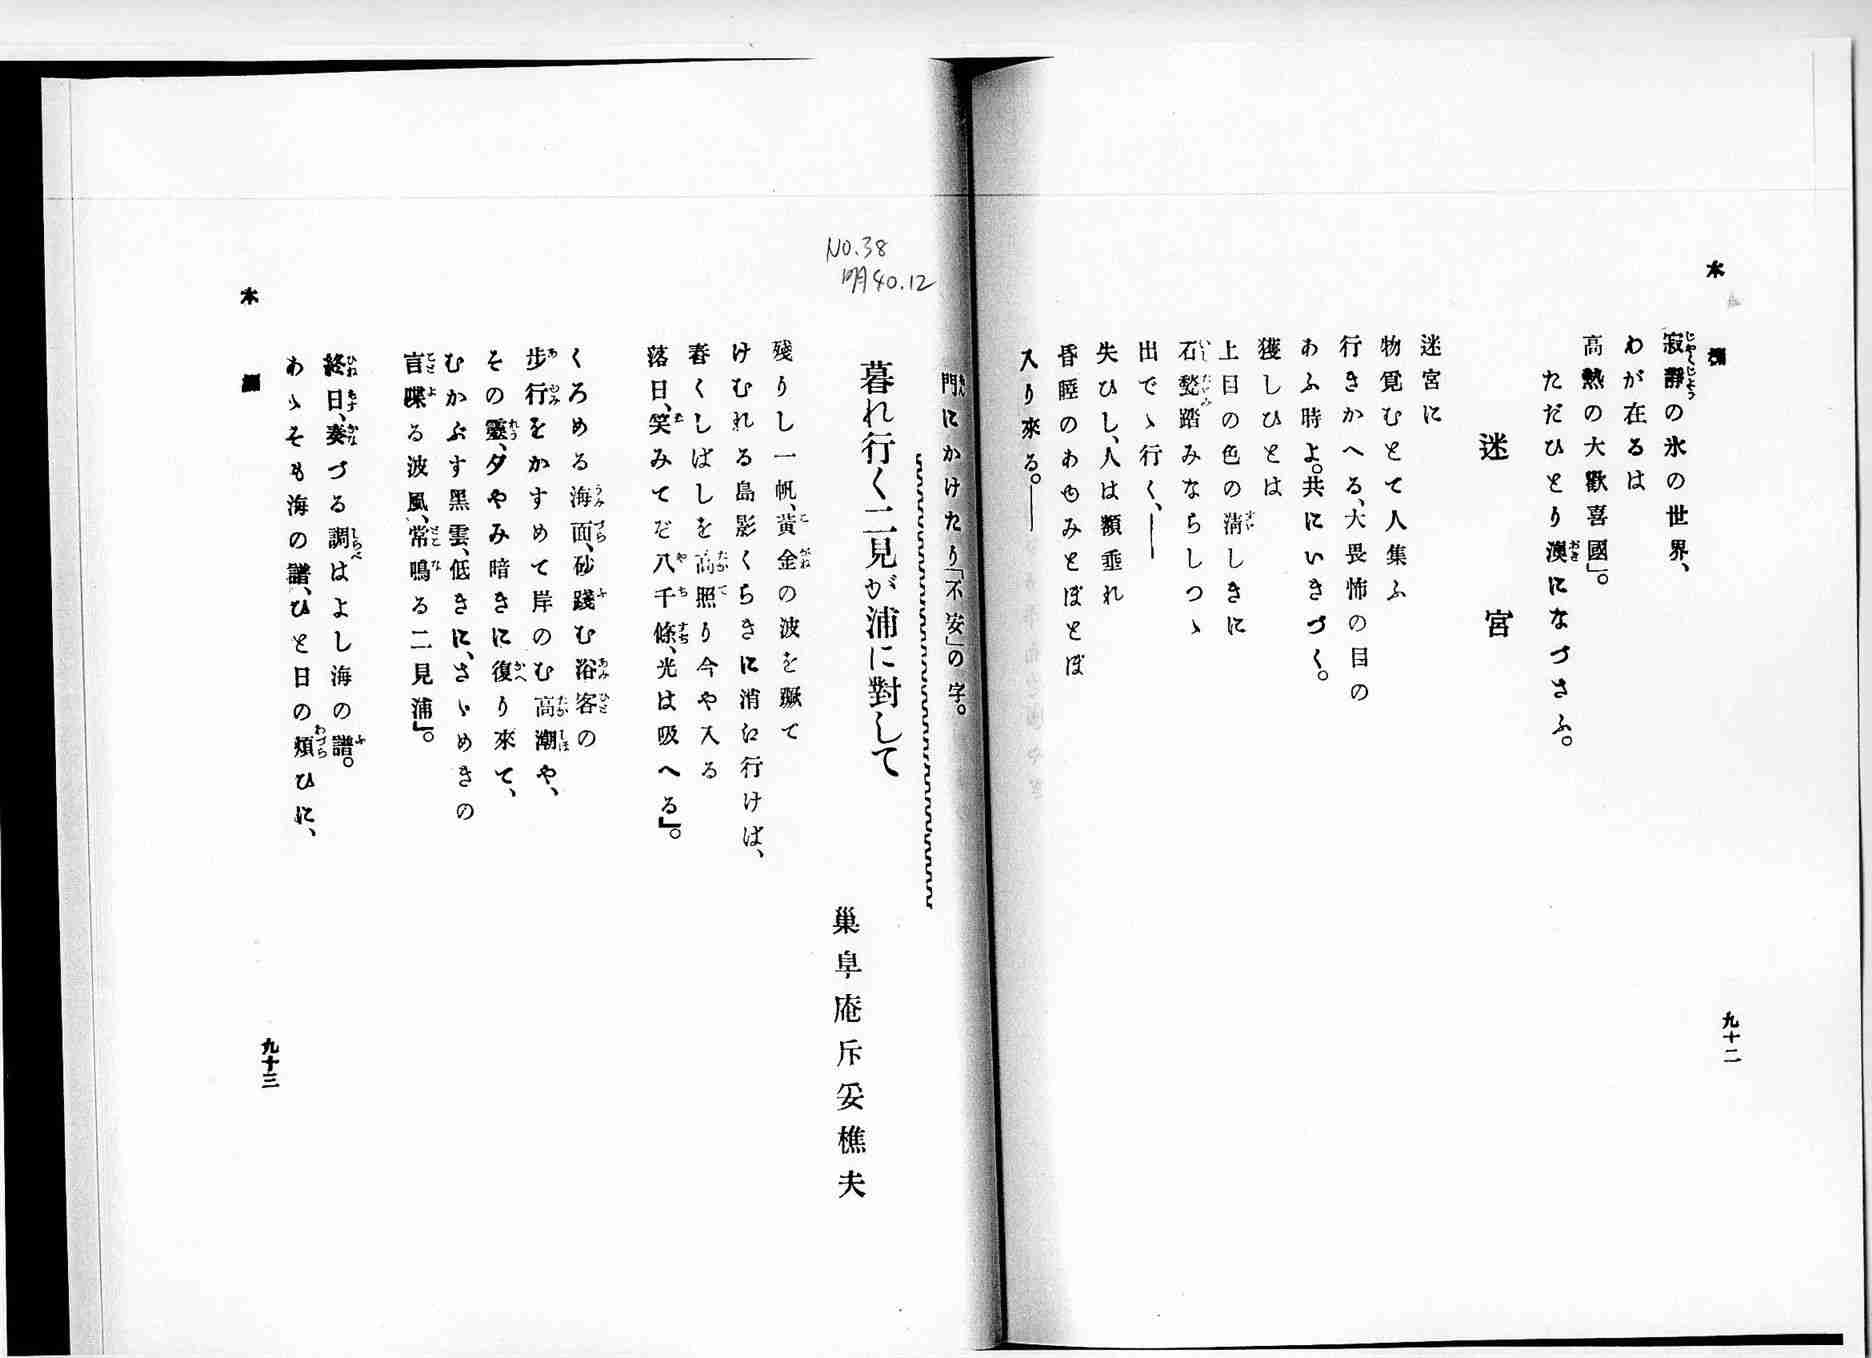 木
欄
寂靜の氷の世界、
わが在るは
高熱の大歡喜國」。
ただひとり澳になづさふ。
迷宮
迷宮に
物覓むとて人集ふ
行きかへる、大畏怖の目の
あふ時よ。共にいきづく。
獲しひとは
上目の色の淸しきに
石甃踏みならしつゝ
出でゝ行く、――
失ひし、人は額垂れ
昏睡のあゆみとぼとぼ
入り來る。――
九十二
門にかけたり「不安」の字。
NO.38
明40.12
暮れ行く二見が浦に對して
巢阜庵斥妛樵夫
殘りし一帆、黃金の波を蹶て
けむれる島影くらきに消え行けば、
春くしばしを高照り今や入る
落日、笑みてぞ八千條、光は吸へる」。
くろめる海面、砂踐む浴客の
步行をかすめて岸のむ高潮や、
その靈、夕やみ暗きに復り來て、
むかぶす黑雲、低きに、さゝめきの
言喋る波風、常鳴る二見浦」。
終日、奏づる調はよし海の譜。
あゝそも海の譜、ひと日の煩ひに、
木
九十三